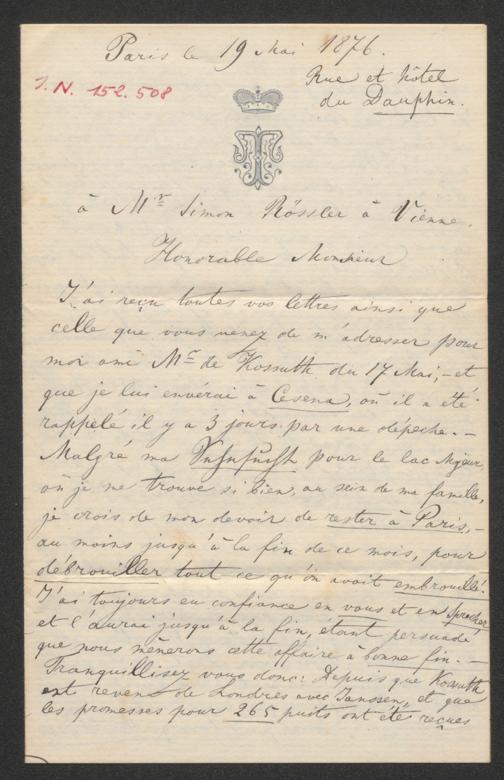 Paris le 19 Mai 1876.
J. N. 152.508
Rue et hôtel
du Dauphin.
à Mr Simon Rössler à Vienne.
Honorable Monsieur
J'ai reçu toutes vos lettres ainsi que
celle que vous venez de m'adresser pour
mon ami Mr de Kossuth du 17 Mai, – et
que je lui envérai à Cesena, où il a été
rappelé il y a 3 jours par une dépeche. –
Malgré ma Sehnsucht pour le lac Majeur,
où je me trouve si bien, au sein de ma famille,
je crois de mon devoir de rester à Paris, –
au moins jusqu'à la fin de ce mois, pour
débrouiller tout ce qu'on avait embrouillé.
J'ai toujours eu confiance en vous et en Sprecher
et l'aurai jusqu'à la fin, étant persuadé
que nous mènerons cette affaire à bonne fin. –
Tranquillisez vous donc: Depuis que Kossuth
est revenu de Londres avec Janssen, et que
les promesses pour 265 puits ont été reçues